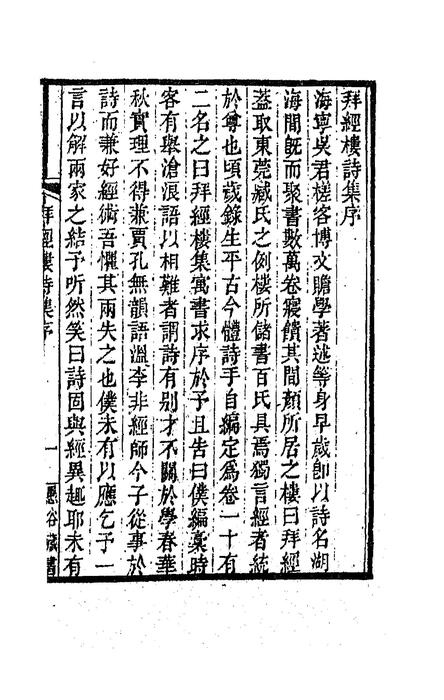 拜經樓詩集序
海寧吳君槎客博文贍學著述等身早歲卽以詩名湖
海間旣而聚書數萬卷寢饋其間顏所居之樓曰拜經
葢取東莞臧氏之例樓所儲書百氏具焉獨言經者統
於尊也頃歲錄生平古今體詩手自編定爲卷一十有
二名之曰拜經樓集寓書求序於予且告曰僕編稾時
客有舉滄浪語以相難者謂詩有别才不關於學春華
秋實理不得兼賈孔無韻語溫李非經師今子從事於
詩而兼好經術吾懼其兩失之也僕未有以應乞予一
言以解兩家之結予听然笑曰詩固與經異趣耶未有
拜經樓詩集序
一
愚谷叢書